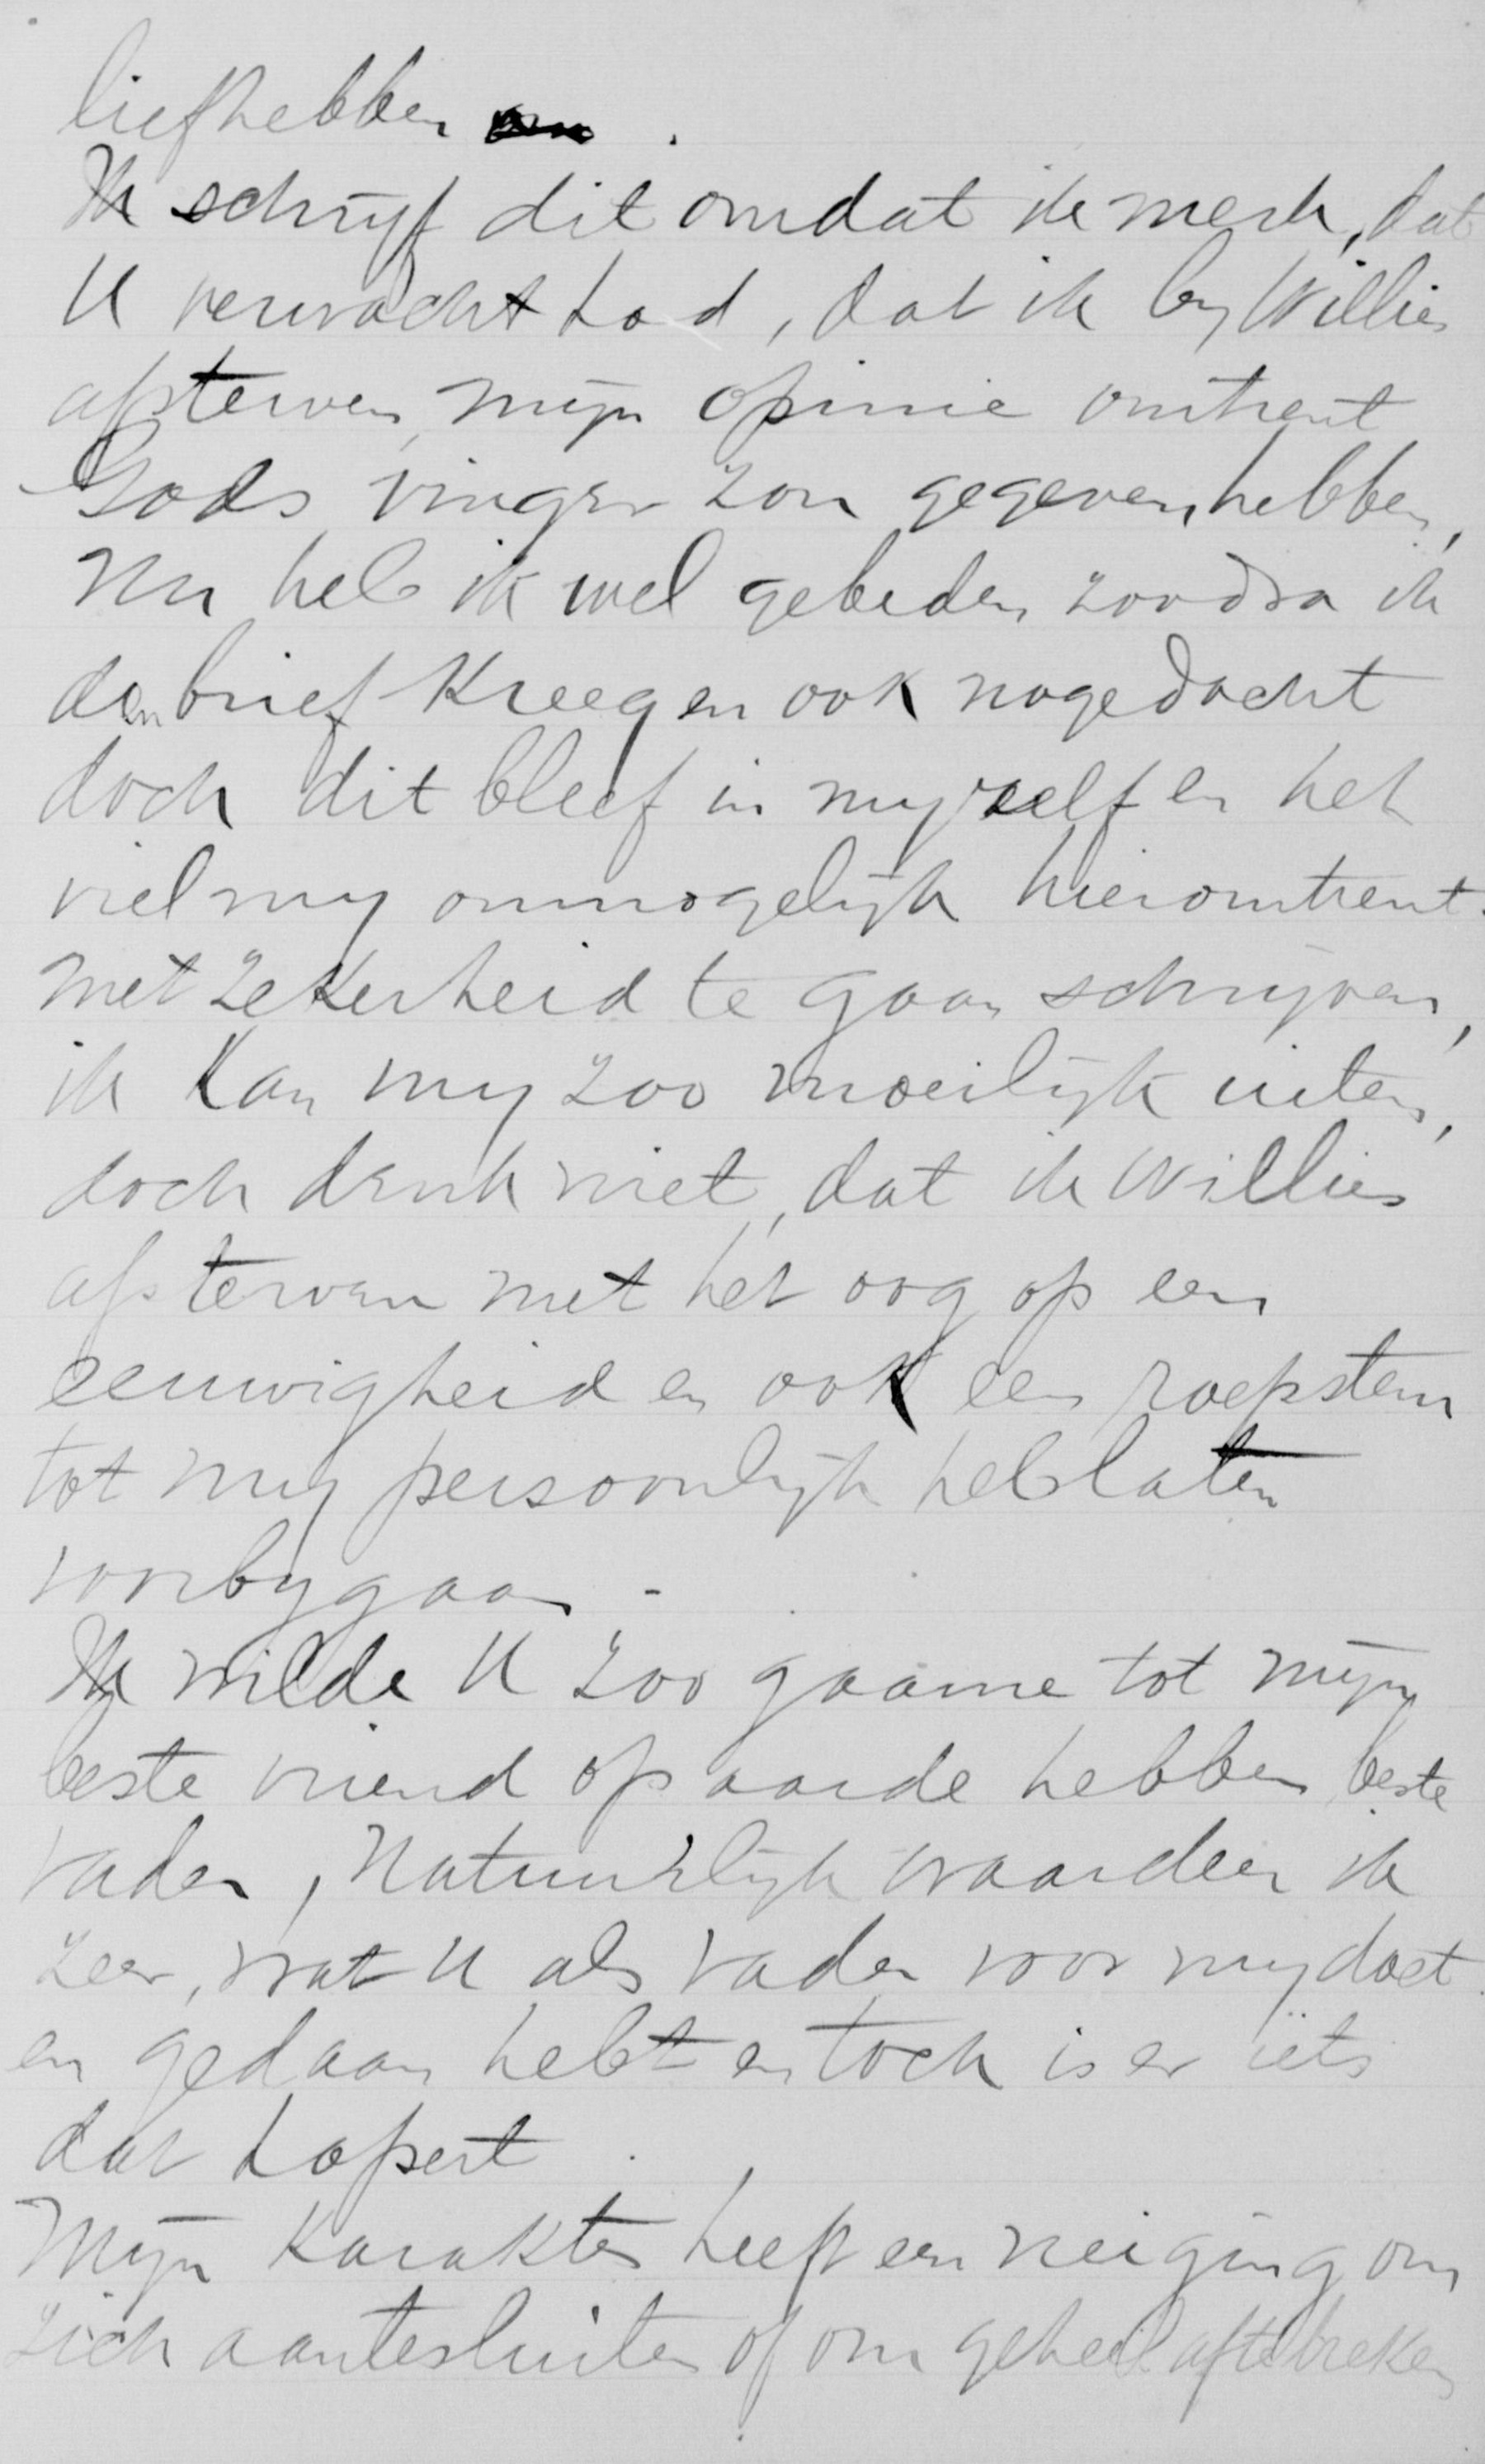 liefhebben .
Ik schrijf dit omdat ik merk, dat
U verwacht had, dat ik by Willies
afsterven, mijn opinie omtrent
Gods vinger zou gegeven hebben,
Nu heb ik wel gebeden zoodra ik
den brief kreeg en ook nagedacht
doch dit bleef in myzelf en het
viel my onmogelijk hieromtrent
met zekerheid te gaan schrijven,
ik kan my zoo moeilijk uiten,
doch denk niet, dat ik Willies
afsterven met het oog op een
eeuwigheid en ook een roepstem
tot my persoonlijk heb laten
voorbygaan .
Ik wilde U zoo gaarne tot mijn
beste vriend op aarde hebben beste
vader, Natuurlijk waardeer ik
zeer, wat U als vader voor my doet
en gedaan hebt en toch is er iets
dat hapert .
Mijn karakter heeft een neiging om
zich aantesluiten of om geheel aftebreken